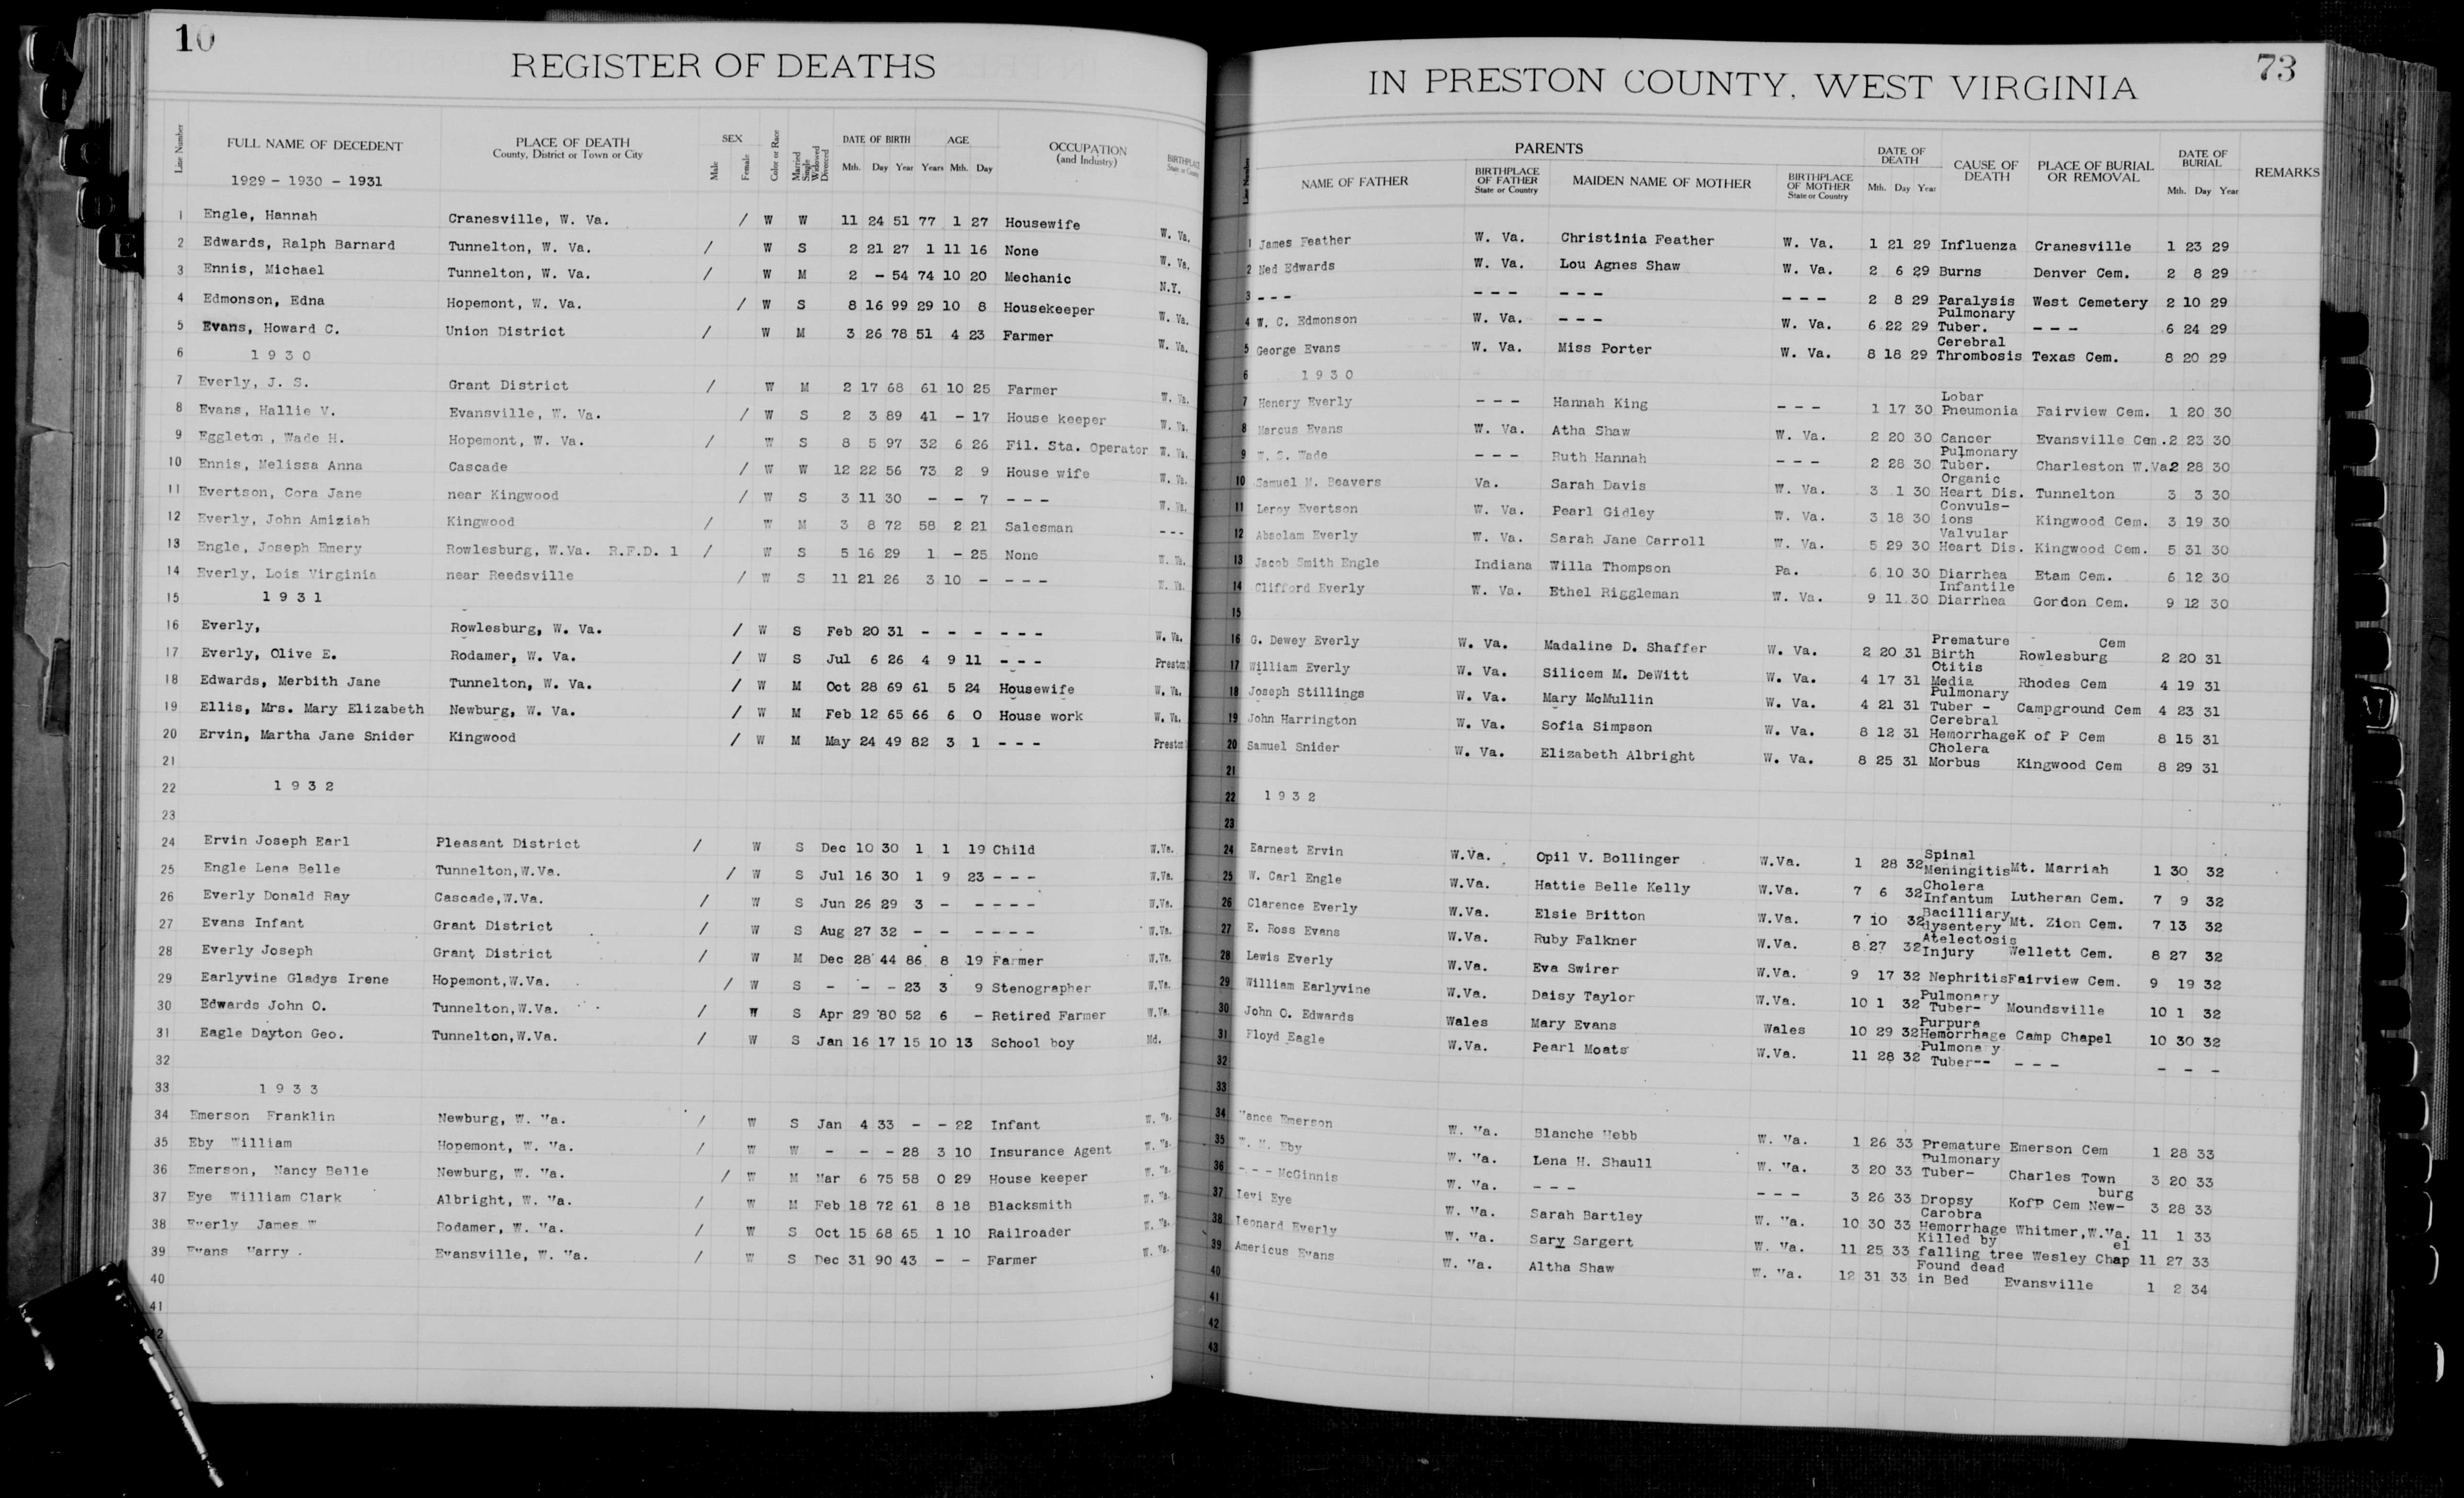 10
REGISTER OF DEATHS
Line Number
FULL NAME OF DECEDENT
1929 - 1930 - 1931
PLACE OF DEATH
County, District or Town or City
SEX
Male
Female
Color or Race
Married
Single
Widowed
Divorced
DATE OF BIRTH
Mth. Day Year
AGE
Years Mth. Day
OCCUPATION
(and Industry)
BIRTHPLACE
State or County
1 Engle, Hannah Cranesville, W. Va. / W W 11 24 51 77 1 27 Housewife W. Va.
2 Edwards, Ralph Barnard Tunnelton, W. Va. / W S 2 21 27 1 11 16 None W. Va.
3 Ennis, Michael Tunnelton, W. Va. / W M 2 - 54 74 10 20 Mechanic N.Y.
4 Edmonson, Edna Hopemont, W. Va. / W S 8 16 99 29 10 8 Housekeeper W. Va.
5 Evans, Howard C. Union District / W M 3 26 78 51 4 23 Farmer W. Va.
6 1930
7 Everly, J. S. Grant District / W M 2 17 68 61 10 25 Farmer W. Va.
8 Evans, Hallie V. Evansville, W. Va. / W S 2 3 89 41 - 17 House keeper W. Va.
9 Eggleton, Wade H. Hopemont, W. Va. / W S 8 5 97 32 6 26 Fil. Sta. Operator W. Va.
10 Ennis, Melissa Anna Cascade / W W 12 22 56 73 2 9 House wife W. Va.
11 Evertson, Cora Jane near Kingwood / W S 3 11 30 - - 7 - - - W. Va.
12 Everly, John Amiziah Kingwood / W M 3 8 72 58 2 21 Salesman - - -
13 Engle, Joseph Emery Rowlesburg, W.Va. R.F.D. 1 / W S 5 16 29 1 - 25 None W. Va.
14 Everly, Lois Virginia near Reedsville / W S 11 21 26 3 10 - - - - W. Va.
15 1931
16 Everly, Rowlesburg, W. Va. / W S Feb 20 31 - - - - - - W. Va.
17 Everly, Olive E. Rodamer, W. Va. / W S Jul 6 26 4 9 11 - - - Preston
18 Edwards, Merbith Jane Tunnelton, W. Va. / W M Oct 28 69 61 5 24 Housewife W. Va.
19 Ellis, Mrs. Mary Elizabeth Newburg, W. Va. / W M Feb 12 65 66 6 0 House work W. Va.
20 Ervin, Martha Jane Snider Kingwood / W M May 24 49 82 3 1 - - - Preston
21
22 1932
23
24 Ervin Joseph Earl Pleasant District / W S Dec 10 30 1 1 19 Child W.Va.
25 Engle Lena Belle Tunnelton,W.Va. / W S Jul 16 30 1 9 23 - - - W.Va.
26 Everly Donald Ray Cascade,W.Va. / W S Jun 26 29 3 - - - - - W.Va.
27 Evans Infant Grant District / W S Aug 27 32 - - - - - - W.Va.
28 Everly Joseph Grant District / W M Dec 28 44 86 8 19 Farmer W.Va.
29 Earlyvine Gladys Irene Hopemont,W.Va. / W S - - - 23 3 9 Stenographer W.Va.
30 Edwards John O. Tunnelton,W.Va. / W S Apr 29 80 52 6 - Retired Farmer W.Va.
31 Eagle Dayton Geo. Tunnelton,W.Va. / W S Jan 16 17 15 10 13 School boy Md.
32
33 1933
34 Emerson Franklin Newburg, W. Va. / W S Jan 4 33 - - 22 Infant W. Va.
35 Eby William Hopemont, W. Va. / W W - - - 28 3 10 Insurance Agent W. Va.
36 Emerson, Nancy Belle Newburg, W. Va. / W M Mar 6 75 58 0 29 House keeper W. Va.
37 Eye William Clark Albright, W. Va. / W M Feb 18 72 61 8 18 Blacksmith W. Va.
38 Everly James W Rodamer, W. Va. / W S Oct 15 68 65 1 10 Railroader W. Va.
39 Evans Harry . Evansville, W. Va. / W S Dec 31 90 43 - - Farmer W. Va.
40
41
42
E
73
IN PRESTON COUNTY, WEST VIRGINIA
Line Number
PARENTS
NAME OF FATHER
BIRTHPLACE
OF FATHER
State or Country
MAIDEN NAME OF MOTHER
BIRTHPLACE
OF MOTHER
State or Country
DATE OF
DEATH
Mth. Day Year
CAUSE OF
DEATH
PLACE OF BURIAL
OR REMOVAL
DATE OF
BURIAL
Mth. Day Year
REMARKS
1 James Feather W. Va. Christinia Feather W. Va. 1 21 29 Influenza Cranesville 1 23 29
2 Ned Edwards W. Va. Lou Agnes Shaw W. Va. 2 6 29 Burns Denver Cem. 2 8 29
3 - - - - - - - - - - - - 2 8 29 Paralysis West Cemetery 2 10 29
4 W. C. Edmonson W. Va. - - - W. Va. 6 22 29 Pulmonary Tuber. - - - 6 24 29
5 George Evans W. Va. Miss Porter W. Va. 8 18 29 Cerebral Thrombosis Texas Cem. 8 20 29
6 1930
7 Henery Everly - - - Hannah King - - - 1 17 30 Lobar Pneumonia Fairview Cem. 1 20 30
8 Marcus Evans W. Va. Atha Shaw W. Va. 2 20 30 Cancer Evansville Cem. 2 23 30
9 W. S. Wade - - - Ruth Hannah - - - 2 28 30 Pulmonary Tuber. Charleston W.Va 2 28 30
10 Samuel M. Beavers Va. Sarah Davis W. Va. 3 1 30 Organic Heart Dis. Tunnelton 3 3 30
11 Leroy Evertson W. Va. Pearl Gidley W. Va. 3 18 30 Convuls-ions Kingwood Cem. 3 19 30
12 Absolam Everly W. Va. Sarah Jane Carroll W. Va. 5 29 30 Valvular Heart Dis. Kingwood Cem. 5 31 30
13 Jacob Smith Engle Indiana Willa Thompson Pa. 6 10 30 Diarrhea Etam Cem. 6 12 30
14 Clifford Everly W. Va. Ethel Riggleman W. Va. 9 11 30 Infantile Diarrhea Gordon Cem. 9 12 30
15
16 G. Dewey Everly W. Va. Madaline D. Shaffer W. Va. 2 20 31 Premature Birth Rowlesburg Cem 2 20 31
17 William Everly W. Va. Silicem M. DeWitt W. Va. 4 17 31 Otitis Media Rhodes Cem 4 19 31
18 Joseph Stillings W. Va. Mary McMullin W. Va. 4 21 31 Pulmonary Tuber - Campground Cem 4 23 31
19 John Harrington W. Va. Sofia Simpson W. Va. 8 12 31 Cerebral Hemorrhage K of P Cem 8 15 31
20 Samuel Snider W. Va. Elizabeth Albright W. Va. 8 25 31 Cholera Morbus Kingwood Cem 8 29 31
21
22 1932
23
24 Earnest Ervin W.Va. Opil V. Bollinger W.Va. 1 28 32 Spinal Meningitis Mt. Marriah 1 30 32
25 W. Carl Engle W.Va. Hattie Belle Kelly W.Va. 7 6 32 Cholera Infantum Lutheran Cem. 7 9 32
26 Clarence Everly W.Va. Elsie Britton W.Va. 7 10 32 Bacilliary dysentery Mt. Zion Cem. 7 13 32
27 E. Ross Evans W.Va. Ruby Falkner W.Va. 8 27 32 Atelectosis Injury Wellett Cem. 8 27 32
28 Lewis Everly W.Va. Eva Swirer W.Va. 9 17 32 Nephritis Fairview Cem. 9 19 32
29 William Earlyvine W.Va. Daisy Taylor W.Va. 10 1 32 Pulmonary Tuber- Moundsville 10 1 32
30 John O. Edwards Wales Mary Evans Wales 10 29 32 Purpura Hemorrhage Camp Chapel 10 30 32
31 Floyd Eagle W.Va. Pearl Moats W.Va. 11 28 32 Pulmonary Tuber-- - - - - - -
32
33
34 Vance Emerson W. Va. Blanche Hebb W. Va. 1 26 33 Premature Emerson Cem 1 28 33
35 W. H. Eby W. Va. Lena H. Shaull W. Va. 3 20 33 Pulmonary Tuber- Charles Town 3 20 33
36 - - - McGinnis W. Va. - - - - - - 3 26 33 Dropsy KofP Cem New-burg 3 28 33
37 Levi Eye W. Va. Sarah Bartley W. Va. 10 30 33 Carobra Hemorrhage Whitmer,W.Va. 11 1 33
38 Leonard Everly W. Va. Sary Sargert W. Va. 11 25 33 Killed by falling tree Wesley Chapel 11 27 33
39 Americus Evans W. Va. Altha Shaw W. Va. 12 31 33 Found dead in Bed Evansville 1 2 34
40
41
42
43